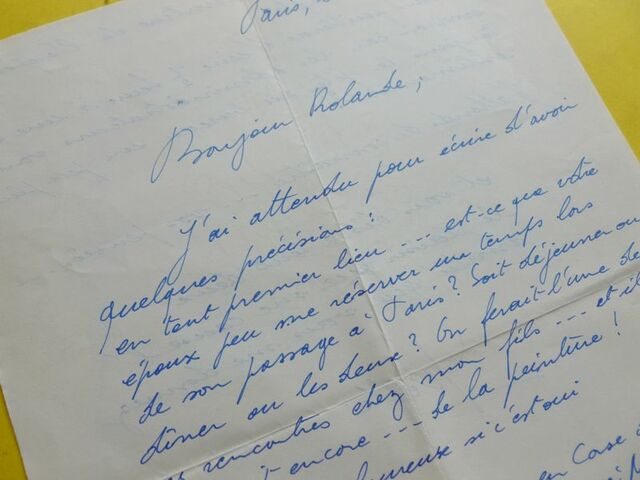 Paris,
Bonjour Rolande,
J'ai attendu pour écrire d'avoir
quelques précisions:
en tout premier lieu --- est-ce que votre
époux peu me réserver un temps lors
de son passage à Paris? Soit déjeuner ou
dîner ou les deux? On ferait l'une de
rencontres chez mon fils --- et il
encore --- de la peinture!
si c'est oui
en Corse